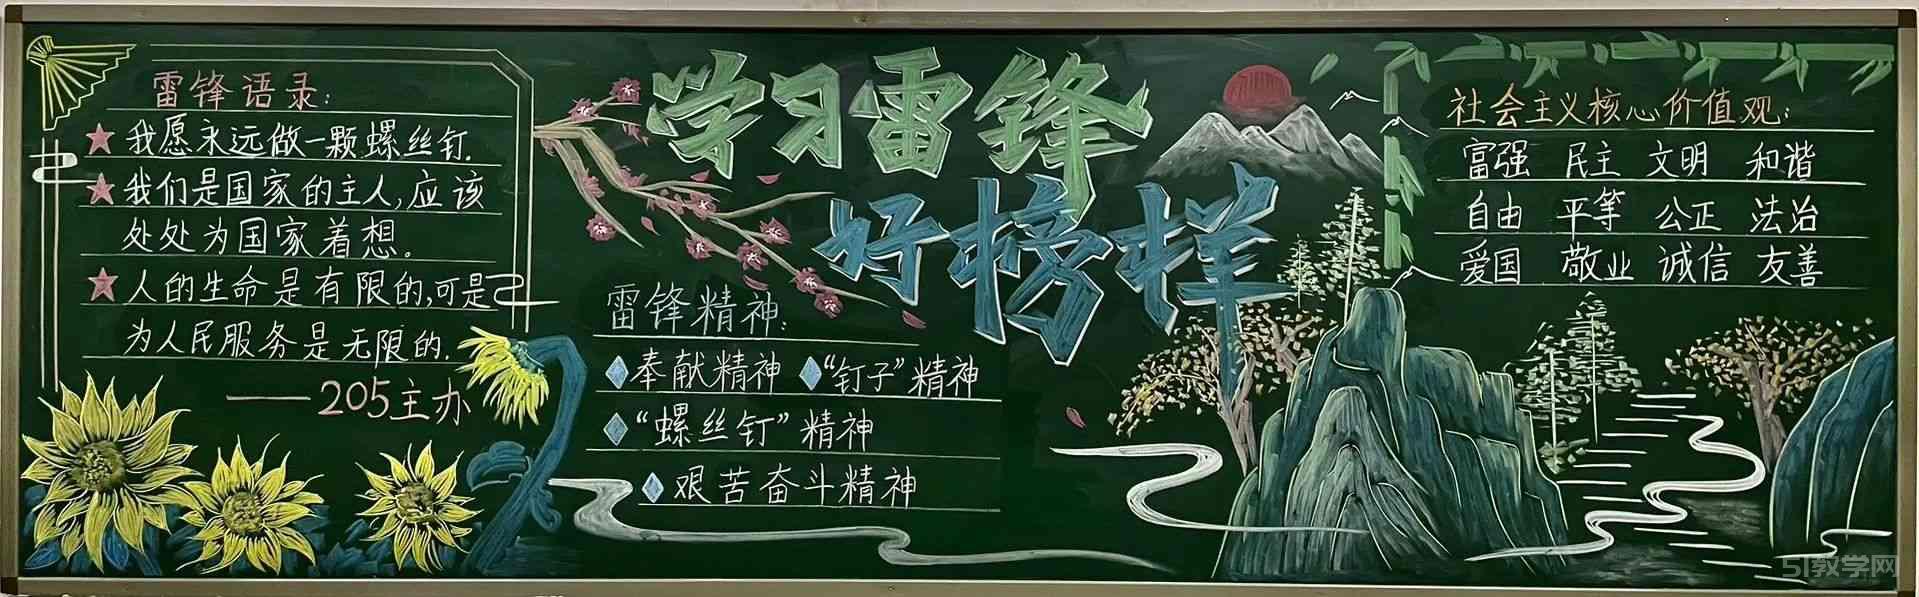 雷锋语录:
★我愿永远做一颗螺丝钉.
★我们是国家的主人,应该
处处为国家着想。
★人的生命是有限的,可是
为人民服务是无限的.
——205主办
学习雷锋
好榜样
雷锋精神:
奉献精神 “钉子”精神
“螺丝钉”精神
艰苦奋斗精神
社会主义核心价值观:
富强 民主 文明 和谐
自由 平等 公正 法治
爱国 敬业 诚信 友善
51教学网